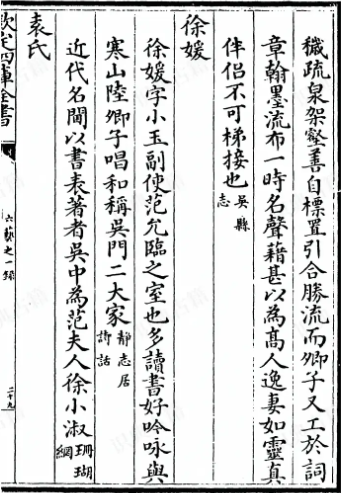 穢疏泉架壑善自標置引合勝流而卿子又工於詞
章翰墨流布一時名聲藉甚以為高人逸妻如靈真
伴侣不可梯接也吳縣志
徐媛
徐媛字小玉副使范允臨之室也多讀書好吟咏與
寒山陸卿子唱和稱吳門二大家静志居詩話
近代名閨以書表著者吳中為范夫人徐小淑珊瑚網
袁氏
欽定四庫全書
六藝之一錄
二十九